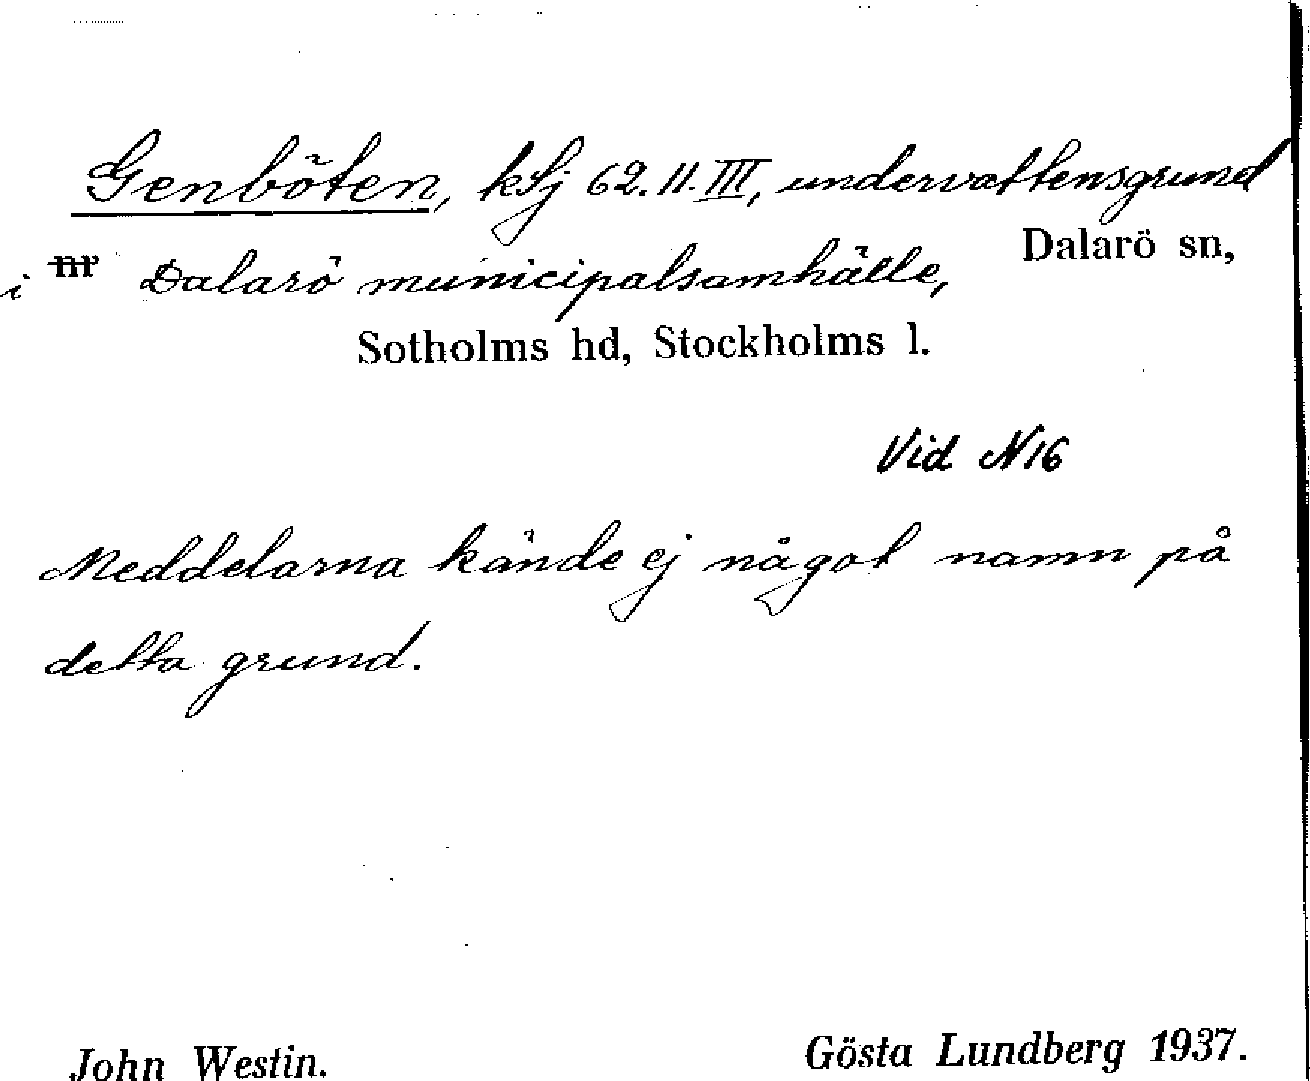 Genböten, kSj 62.11.III, undervattensgrund
i nr Dalarö municipalsamhälle, Dalarö sn,
Sotholms hd, Stockholms l.
Vid N16
Meddelarna kände ej något namn på
detta grund.
John Westin. Gösta Lundberg 1937.